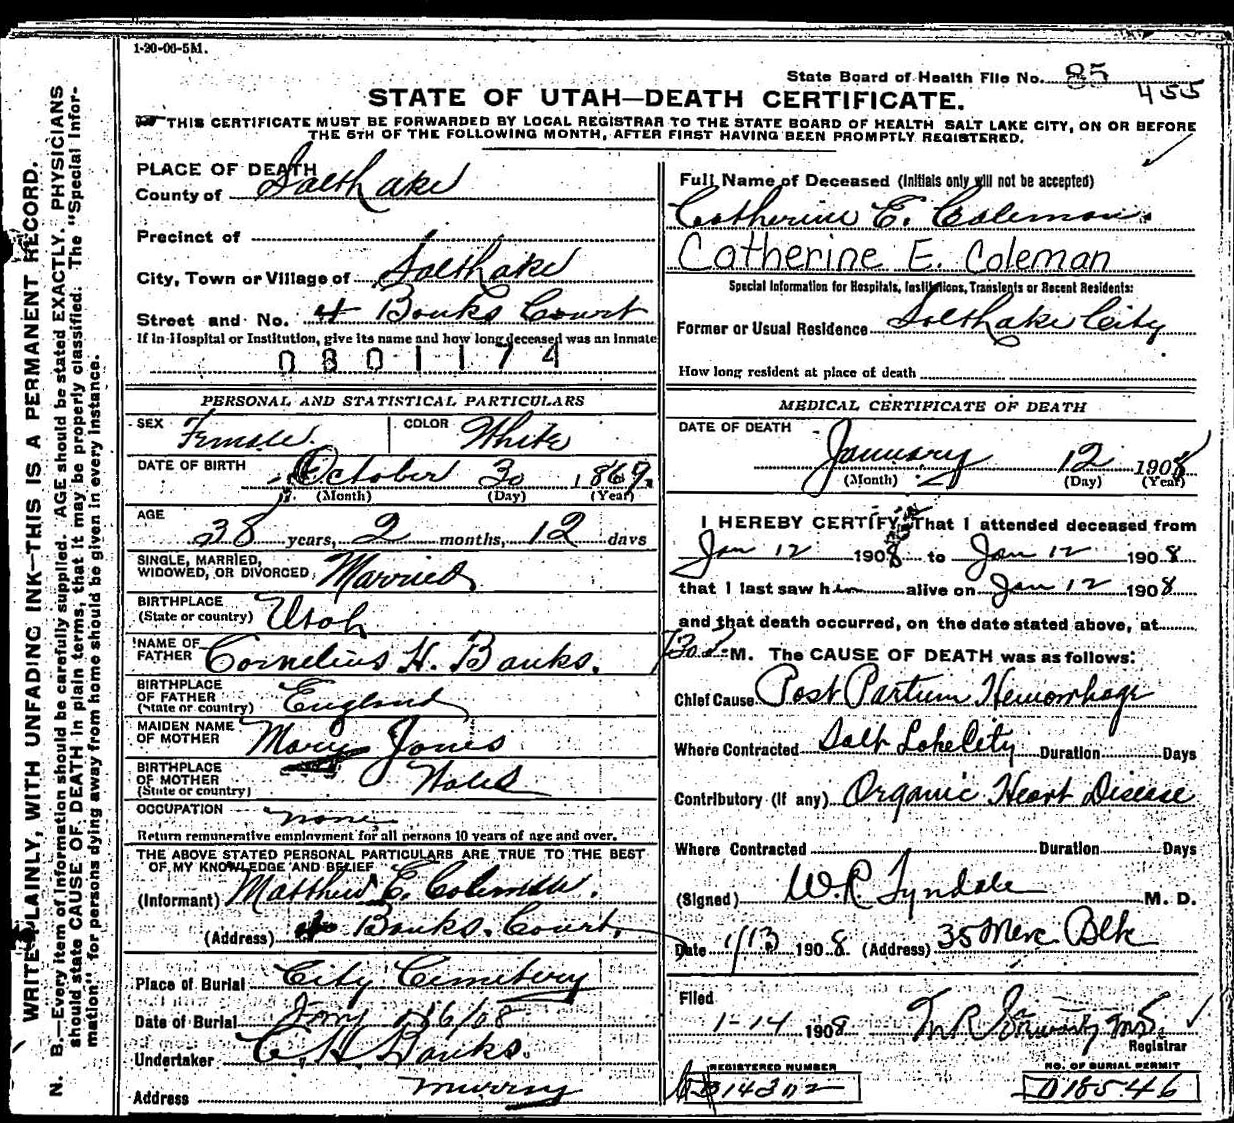 1-20-06-5M.
State Board of Health File No. 85
455
STATE OF UTAH—DEATH CERTIFICATE.
THIS CERTIFICATE MUST BE FORWARDED BY LOCAL REGISTRAR TO THE STATE BOARD OF HEALTH SALT LAKE CITY, ON OR BEFORE
THE 5TH OF THE FOLLOWING MONTH, AFTER FIRST HAVING BEEN PROMPTLY REGISTERED.
WRITE PLAINLY, WITH UNFADING INK—THIS IS A PERMANENT RECORD.
N. B.—Every item of information should be carefully supplied. AGE should be stated EXACTLY. PHYSICIANS
should state CAUSE OF DEATH in plain terms, that it may be properly classified. The "Special Infor-
mation" for persons dying away from home should be given in every instance.
PLACE OF DEATH
County of Salt Lake
Precinct of
City, Town or Village of Salt Lake
Street and No. 4 Banks Court
If in Hospital or Institution, give its name and how long deceased was an inmate
0801174
PERSONAL AND STATISTICAL PARTICULARS
SEX Female. COLOR White
DATE OF BIRTH October 30 1869.
(Month) (Day) (Year)
AGE 38 years, 2 months, 12 days
SINGLE, MARRIED,
WIDOWED, OR DIVORCED Married
BIRTHPLACE
(State or country) Utah
NAME OF
FATHER Cornelius H. Banks.
BIRTHPLACE
OF FATHER
(State or country) England
MAIDEN NAME
OF MOTHER Mary Jones
BIRTHPLACE
OF MOTHER
(State or country) Wales
OCCUPATION none
Return remunerative employment for all persons 10 years of age and over.
THE ABOVE STATED PERSONAL PARTICULARS ARE TRUE TO THE BEST
OF MY KNOWLEDGE AND BELIEF
(Informant) Matthew C. Coleman.
(Address) 4 Banks Court.
Place of Burial City Cemetery
Date of Burial Jany 16/08
Undertaker C. H. Banks.
Address Murray
Full Name of Deceased (Initials only will not be accepted)
Catherine E. Coleman.
Catherine E. Coleman
Special Information for Hospitals, Institutions, Transients or Recent Residents:
Former or Usual Residence Salt Lake City
How long resident at place of death
MEDICAL CERTIFICATE OF DEATH
DATE OF DEATH
January 12 1908
(Month) (Day) (Year)
I HEREBY CERTIFY, That I attended deceased from
Jan 12 1908 to Jan 12 1908
that I last saw h alive on Jan 12 1908
and that death occurred, on the date stated above, at
M. The CAUSE OF DEATH was as follows:
Chief Cause Post Partum Hemorrhage
Where Contracted Salt Lake City Duration Days
Contributory (if any) Organic Heart Disease
Where Contracted Duration Days
(Signed) W.R. Tyndale M. D.
Date 1/13 1908. (Address) 35 Merc Blk
Filed
1-14 1908
Registrar
REGISTERED NUMBER
14302
NO. OF BURIAL PERMIT
018546